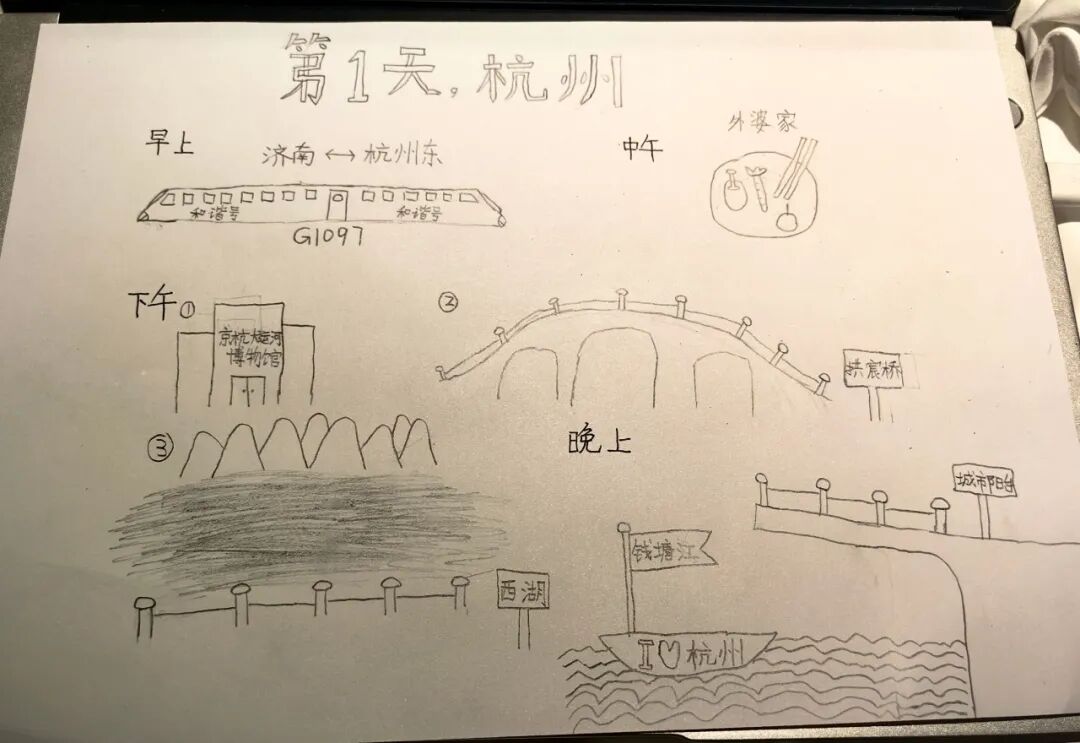 第1天,杭州
早上
济南↔杭州东
和谐号 和谐号
G1097
中午
外婆家
下午①
京杭大运河
博物馆
②
拱宸桥
③
西湖
晚上
城市阳台
钱塘江
I♡杭州